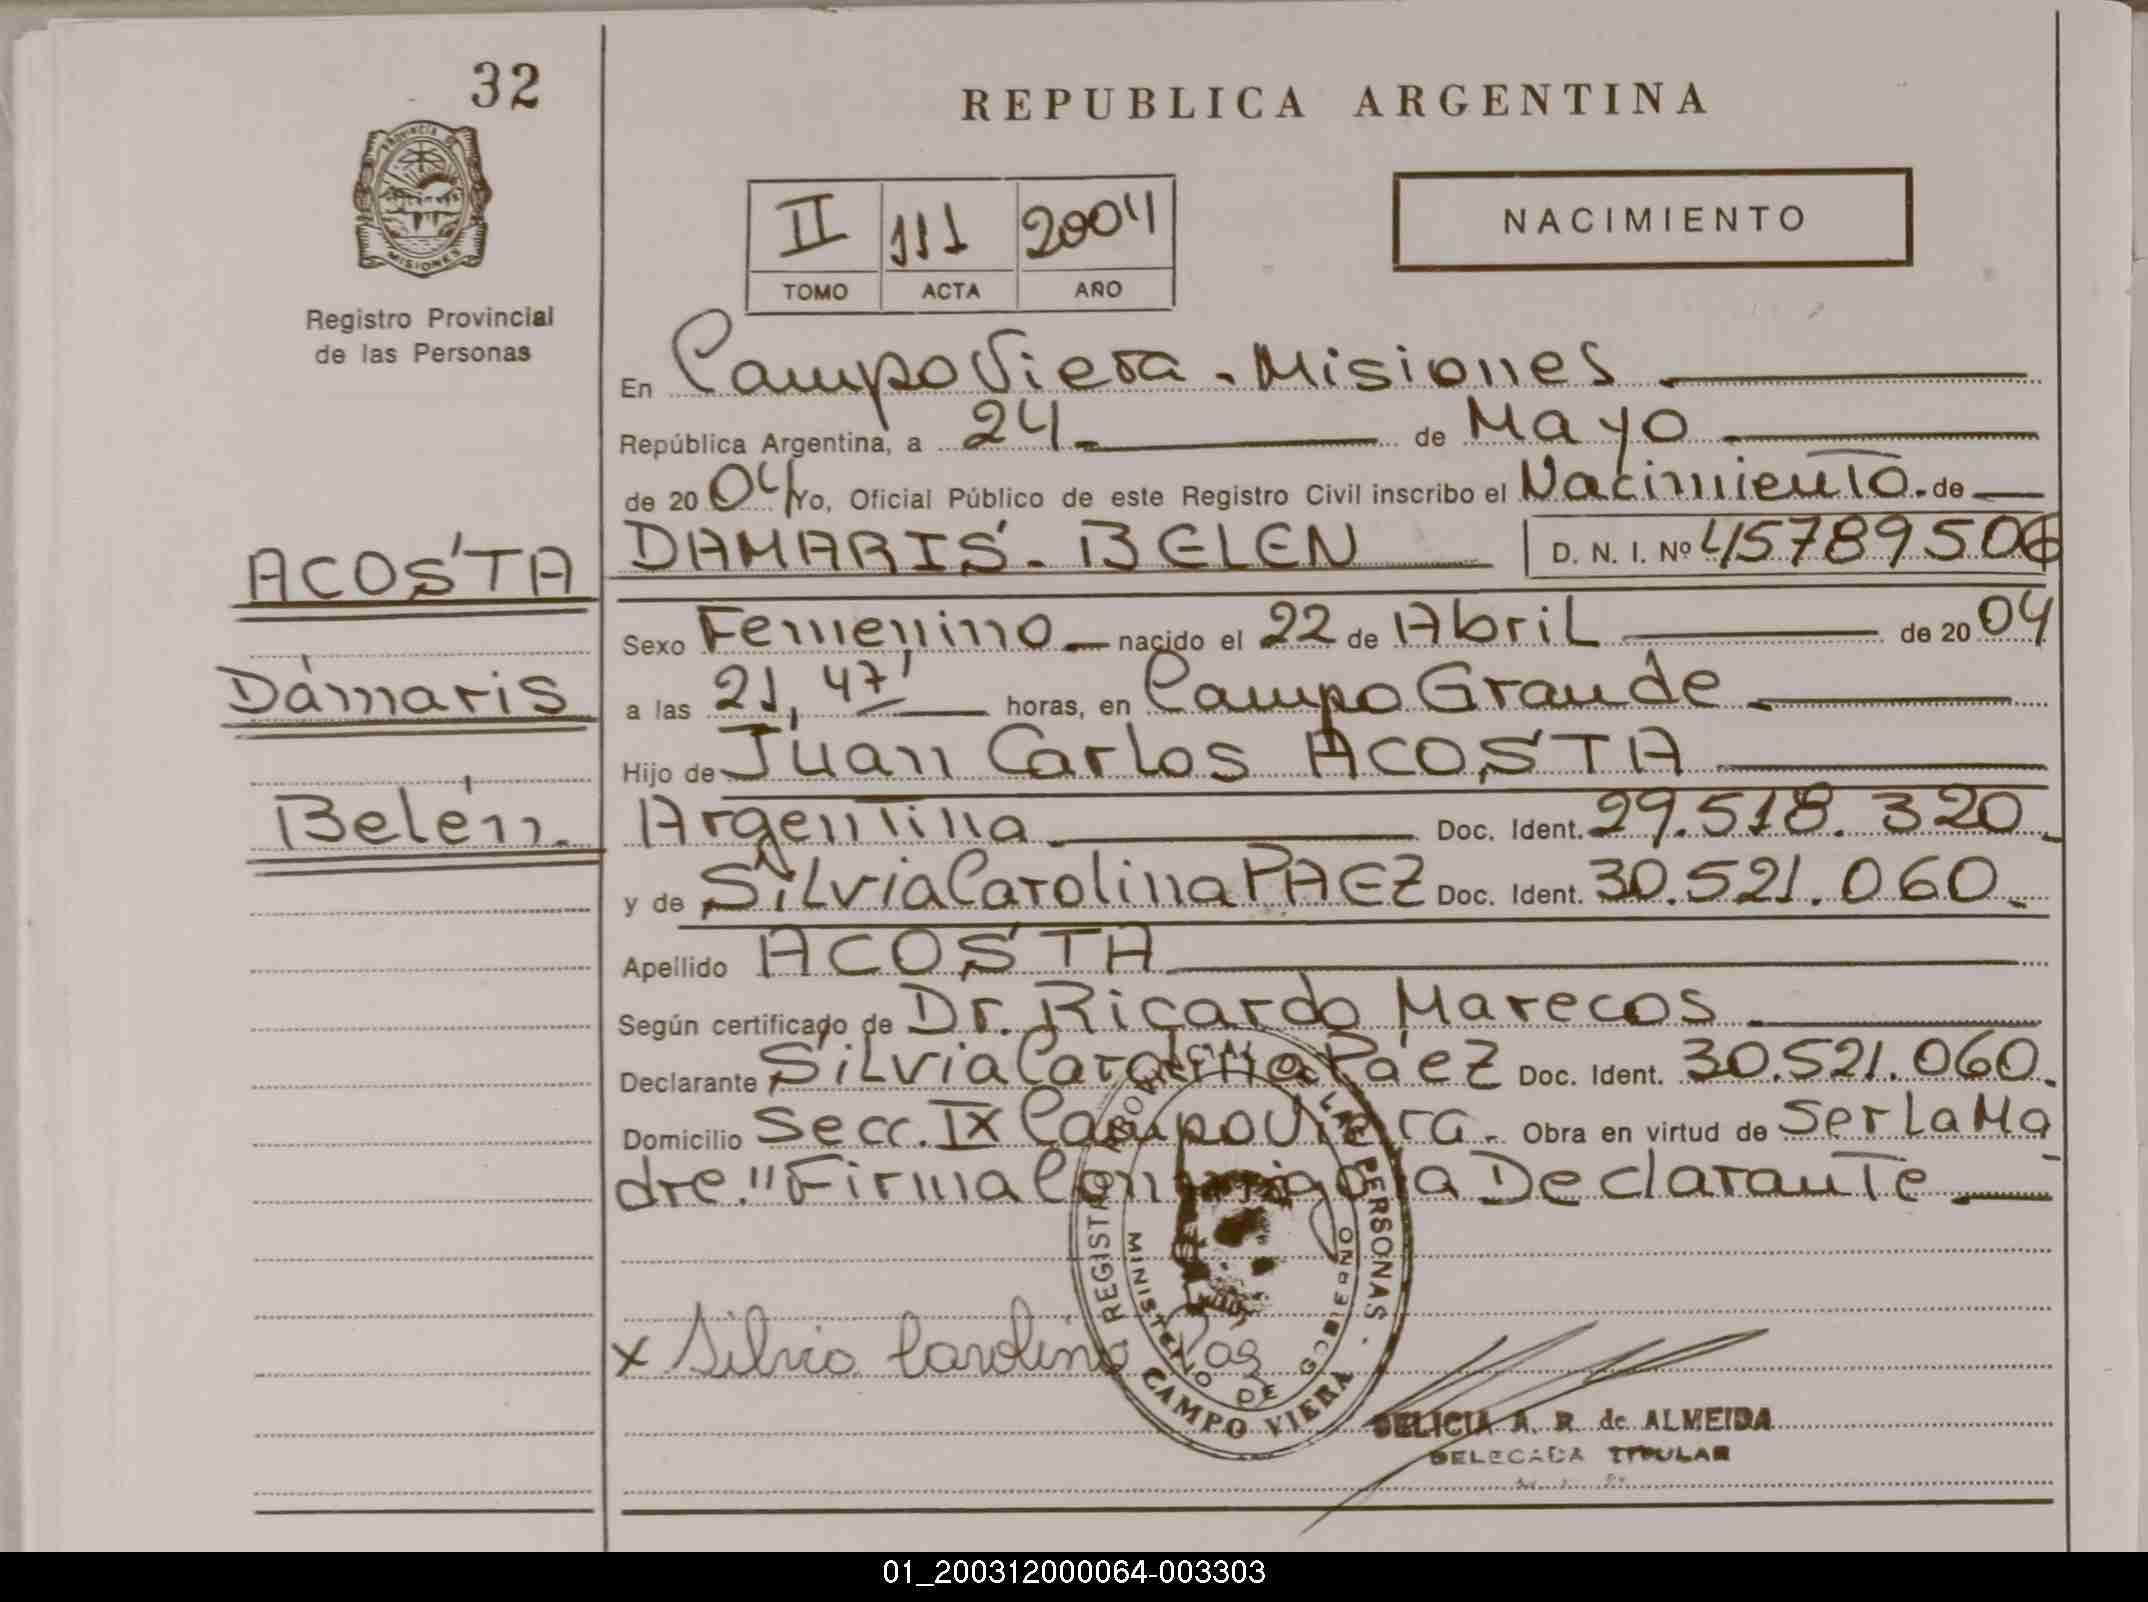 32
PROVINCIA DE
MISIONES
Registro Provincial
de las Personas
ACOSTA
Dámaris
Belén.
REPUBLICA ARGENTINA
II 111 2004
TOMO ACTA AÑO
NACIMIENTO
En Campo Viera - Misiones
República Argentina, a 24 de Mayo
de 2004 Yo, Oficial Público de este Registro Civil inscribo el Nacimiento de
DAMARIS - BELEN D. N. I. Nº 45789506
Sexo Femenino nacido el 22 de Abril de 2004
a las 21,47' horas, en Campo Grande
Hijo de Juan Carlos ACOSTA
Argentina Doc. Ident. 29.518.320
y de Silvia Carolina PAEZ Doc. Ident. 30.521.060.
Apellido ACOSTA
Según certificado de Dr. Ricardo Marecos
Declarante Silvia Carolina Páez Doc. Ident. 30.521.060.
Domicilio Secc. IX Campo Viera. Obra en virtud de Ser La Ma
dre." Firma Conmigo la Declarante
x Silvia Carolina Paz
LAS PERSONAS
MINISTERIO DE GOBIERNO
CAMPO VIERA
DELICIA A. R. de ALMEIDA
DELEGADA TITULAR
01_200312000064-003303